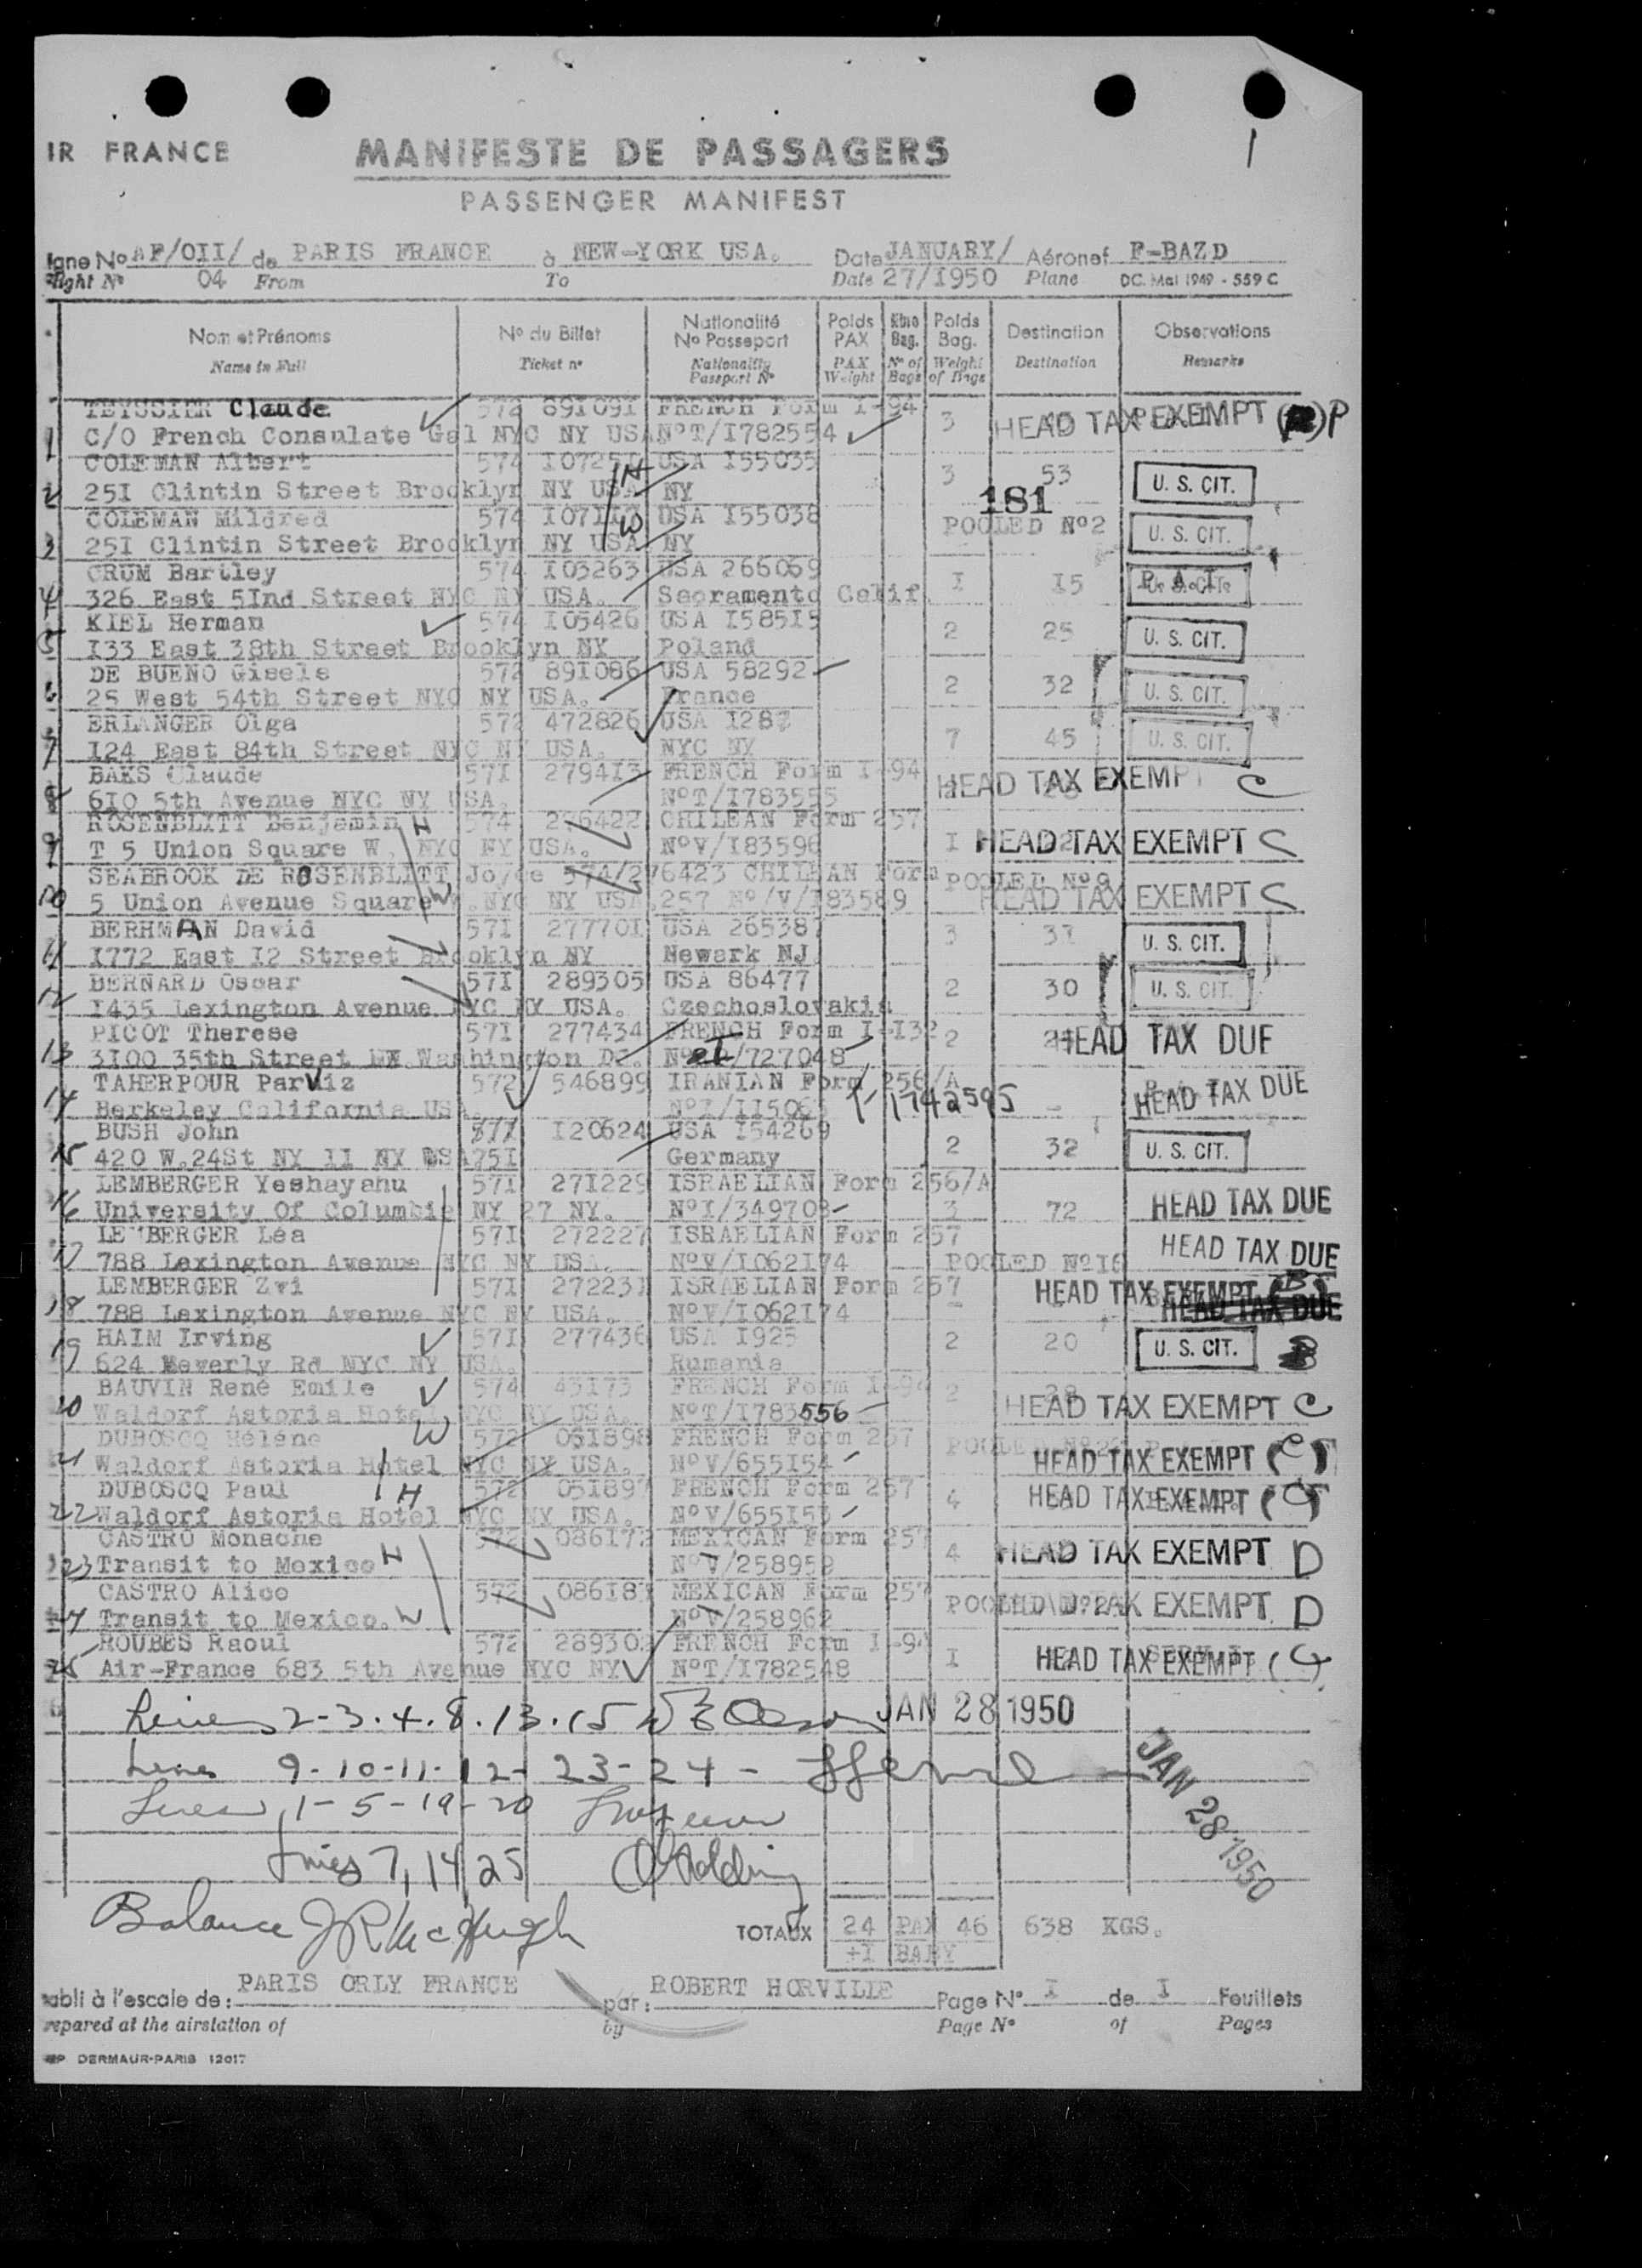 IR FRANCE
MANIFESTE DE PASSAGERS
PASSENGER MANIFEST
1
igne No AF/OII/ de PARIS FRANCE à NEW-YORK USA. Date JANUARY/ Aéronef F-BAZD
Flight No 04 From To Date 27/I950 Plane DC. Mai 1949 - 559 C
Nom et Prénoms No du Billet Nationalité No Passeport Poids PAX Nbre Bag. Poids Bag. Destination Observations
Name in Full Ticket no Nationality Passport No PAX Weight No of Bags Weight of Bags Destination Remarks
TEYSSIER Claude 574 891091 FRENCH Form I-94 3 HEAD TAX EXEMPT P
1 C/O French Consulate Gal NYC NY USA NoT/I782554
COLEMAN Albert 574 USA I55035 3 53 U. S. CIT.
2 25I Clintin Street Brooklyn NY USA H NY 181
COLEMAN Mildred 574 USA I55038 POOLED No2 U. S. CIT.
3 25I Clintin Street Brooklyn NY USA W NY
CRUM Bartley 574 I03263 USA 266069 I I5
4 326 East 5Ind Street NYC NY USA. Sacramento Calif.
KIEL Herman 574 I05426 USA I58515 2 25 U. S. CIT.
5 I33 East 38th Street Brooklyn NY Poland
DE BUENO Gisele 572 891086 USA 58292 2 32 U. S. CIT.
6 25 West 54th Street NYC NY USA. France
ERLANGER Olga 572 472826 USA 7 45 U. S. CIT.
7 I24 East 84th Street NYC NY USA. NYC NY
BAKS Claude 57I 279413 FRENCH Form I-94 HEAD TAX EXEMPT C
8 6IO 5th Avenue NYC NY USA. NoT/I783555
ROSENBLITT Benjamin H 574 276422 CHILEAN Form 257 I HEAD TAX EXEMPT C
9 T 5 Union Square W. NYC NY USA. NoV/I83596
SEABROOK DE ROSENBLITT Joyce 574/276423 CHILEAN Form POOLED No9 HEAD TAX EXEMPT C
10 5 Union Avenue Square W.NYC NY USA.257 No/V/I83589
BERHMAN David 57I 277701 USA 265387 3 37 U. S. CIT.
11 I772 East I2 Street Brooklyn NY Newark NJ
BERNARD Oscar 57I 289305 USA 86477 2 30 U. S. CIT.
12 I435 Lexington Avenue NYC NY USA. Czechoslovakia
PICOT Therese 57I 277434 FRENCH Form I-I32 2 HEAD TAX DUE
13 3I00 35th Street Washington DC. /727048
TAHERPOUR Parviz 572 546899 IRANIAN Form 256/A HEAD TAX DUE
14 Berkeley California USA. 1742595
BUSH John I20624 USA I54269 2 32 U. S. CIT.
15 420 W.24St NY 11 NY USA Germany
LEMBERGER Yeshayahu 57I 27I229 ISRAELIAN Form 256/A
16 University Of Columbia NY 27 NY. NoI/349708 3 72 HEAD TAX DUE
LEMBERGER Léa 57I 272227 ISRAELIAN Form 257 HEAD TAX DUE
17 788 Lexington Avenue NYC NY USA. NoV/I062I74 POOLED No16
LEMBERGER Zvi 57I 27223I ISRAELIAN Form 257 HEAD TAX EXEMPT (B)
18 788 Lexington Avenue NYC NY USA. NoV/I062I74 HEAD TAX DUE
HAIM Irving 57I 277436 USA I925 2 20 U. S. CIT.
19 624 Rd NYC NY USA. Rumania
BAUVIN René Emile 574 45I73 FRENCH Form I-94 2 HEAD TAX EXEMPT C
20 Waldorf Astoria Hotel NYC NY USA. NoT/I783556
DUBOSCQ Hélène W 572 051898 FRENCH Form 257 HEAD TAX EXEMPT (C)
21 Waldorf Astoria Hotel NYC NY USA. NoV/655I54
DUBOSCQ Paul H 572 051897 FRENCH Form 257 4 HEAD TAX EXEMPT (C)
22 Waldorf Astoria Hotel NYC NY USA. NoV/655I53
CASTRO Monache 572 086I72 MEXICAN Form 257 4 HEAD TAX EXEMPT D
23 Transit to Mexico H NoV/258958
CASTRO Alice 572 MEXICAN Form 257 HEAD TAX EXEMPT D
24 Transit to Mexico. W NoV/258962
ROUBES Raoul 572 289302 FRENCH Form I-94 I HEAD TAX EXEMPT (C)
25 Air-France 683 5th Avenue NYC NY NoT/I782548
Lines 2-3.4.8.13.15 JAN 28 1950
Lines 9-10-11-12-23-24-
Lines 1-5-19-20
JAN 28 1950
Lines 7, 14, 25
Balance J R McHugh
TOTAUX 24 PAX 46 638 KGS.
+I BABY
abli à l'escale de: PARIS ORLY FRANCE par: ROBERT HORVILLE Page No I de I Feuillets
repared at the airstation of by Page No of Pages
IMP DERMAUR-PARIS 12017